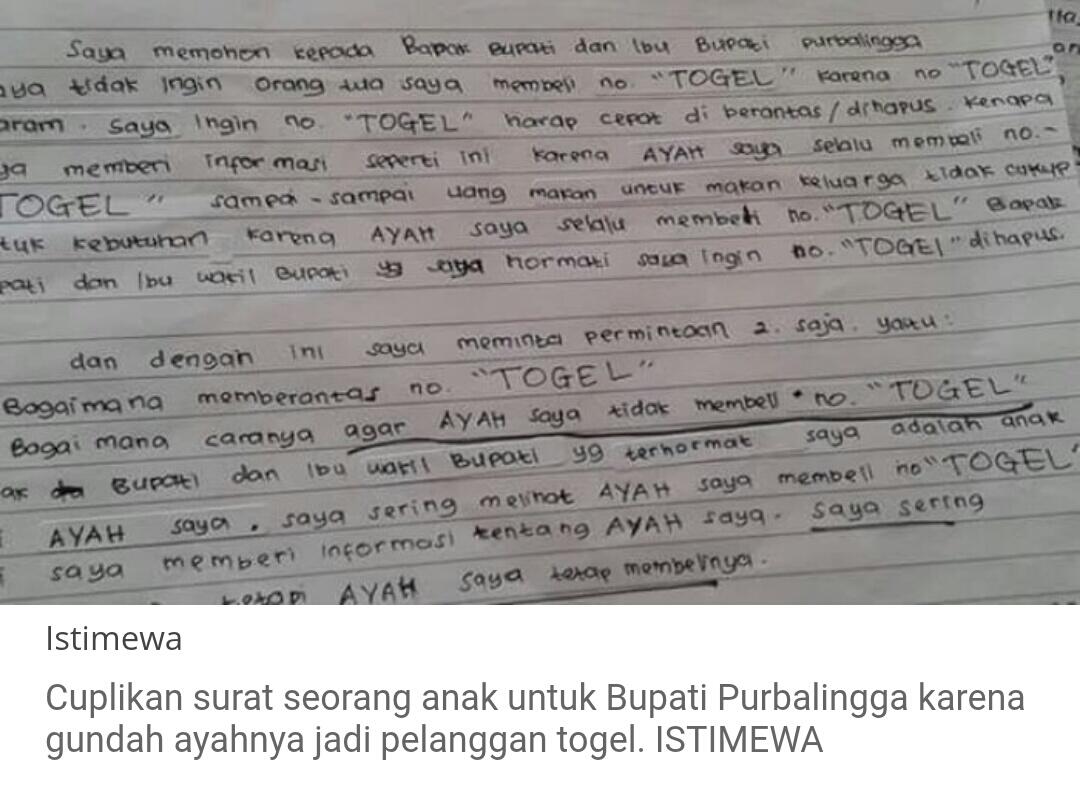 Saya memohon kepada Bapak Bupati dan Ibu Bupati purbalingga
aya tidak Ingin orang tua saya membeli no. "TOGEL" karena no "TOGEL"
aram. Saya Ingin no. "TOGEL" harap cepat di berantas/dihapus. Kenapa
ya memberi informasi seperti ini karena AYAH saya selalu membeli no.-
TOGEL" sampai-sampai uang makan untuk makan keluarga tidak cukup
tuk kebutuhan karena AYAH saya selalu membeli no. "TOGEL" Bapak
pati dan Ibu wakil Bupati yg saya hormati saya Ingin no. "TOGEl" dihapus.
dan dengan ini saya meminta permintaan 2. saja. yaitu:
Bagaimana memberantas no. "TOGEL"
Bagai mana caranya agar AYAH saya tidak membeli no. "TOGEL"
ak Bupati dan Ibu wakil Bupati yg terhormat saya adalah anak
i AYAH saya. saya sering melihat AYAH saya membeli no "TOGEL"
i saya memberi informasi tentang AYAH saya. saya sering
tetapi AYAH saya tetap membelinya.
Istimewa
Cuplikan surat seorang anak untuk Bupati Purbalingga karena
gundah ayahnya jadi pelanggan togel. ISTIMEWA